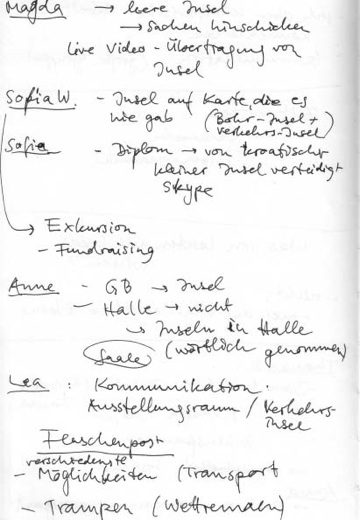 Magda → leere Insel
→ Sachen hinschicken
Live Video - Übertragung von
Insel
Sofia W. - Insel auf Karte, die es
nie gab (Bohr-Insel +
Verkehrs-Insel)
Sofia - Diplom → von kroatischer
kleiner Insel verteidigt
Skype
→ Exkursion
- Fundraising
Anne - GB → Insel
- Halle → nicht
↳ Inseln in Halle
Saale (wörtlich genommen)
Lea : Kommunikation:
Ausstellungsraum / Verkehrs-
insel
Flaschenpost
verschiedenste
- Möglichkeiten (Transport
- Trampen (Wettrennen)